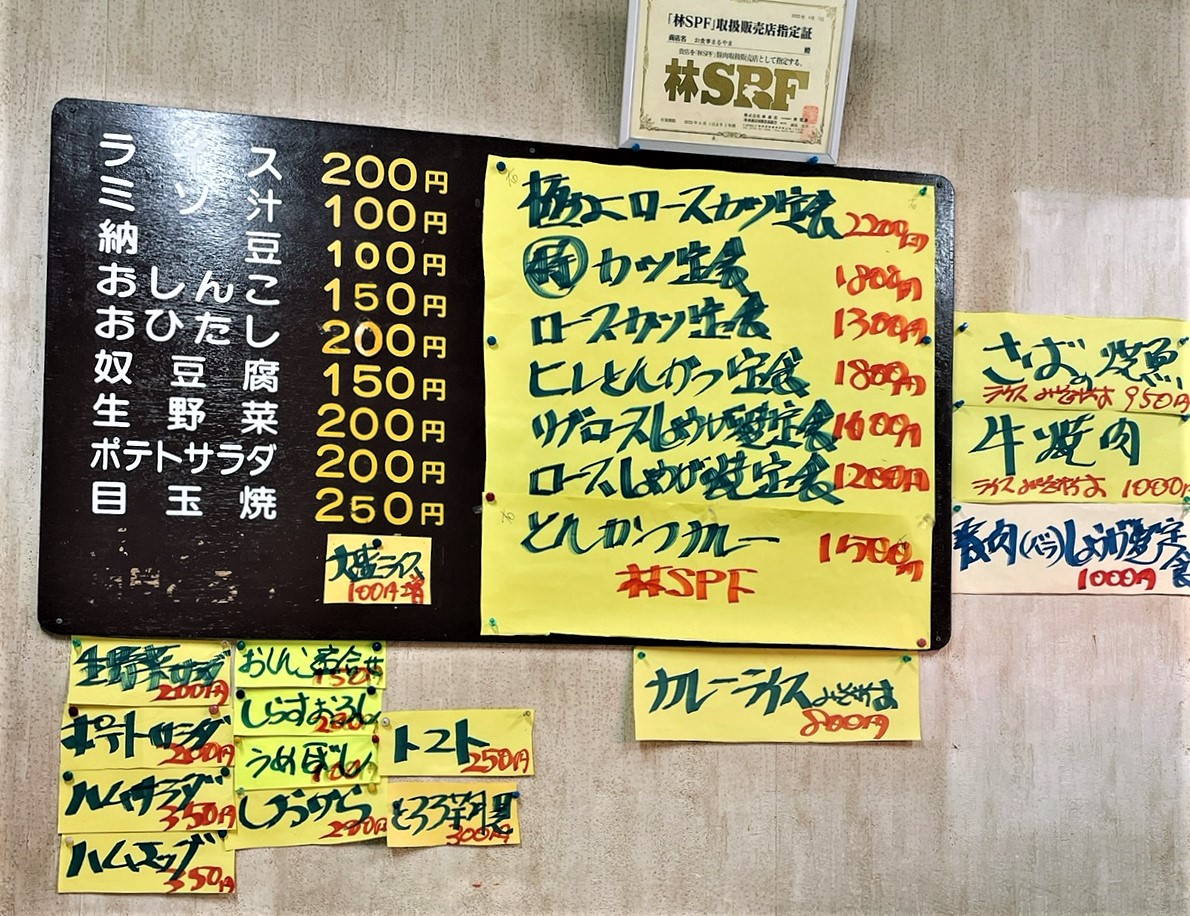 「林SPF」取扱販売店指定証
商店名 お食事まるやま 殿
貴店を「林SPF」豚肉取扱販売店として指定する。
林SPF
ライス 200円
ミソ汁 100円
納豆 100円
おしんこ 150円
おひたし 200円
奴豆腐 150円
生野菜 200円
ポテトサラダ 200円
目玉焼 250円
大盛ライス
100円増
極上ロースカツ定食 2200円
特カツ定食 1800円
ロースカツ定食 1300円
ヒレとんかつ定食 1800円
リブロースしょうが焼定食 1600円
ロースしょうが焼定食 1200円
とんかつカレー 1500円
林SPF
さばの焼魚
ライスみそ汁付 950円
牛焼肉
ライスみそ汁付 1000円
豚肉(バラ)しょうが焼定食
1000円
カレーライス みそ汁付
800円
生野菜サラダ
200円
ポテトサラダ
200円
ハムサラダ
350円
ハムエッグ
350円
おしんこ盛合せ
150円
しらすおろし
200円
うめぼし
100円
しおから
200円
トマト
250円
とろろ芋月見
300円